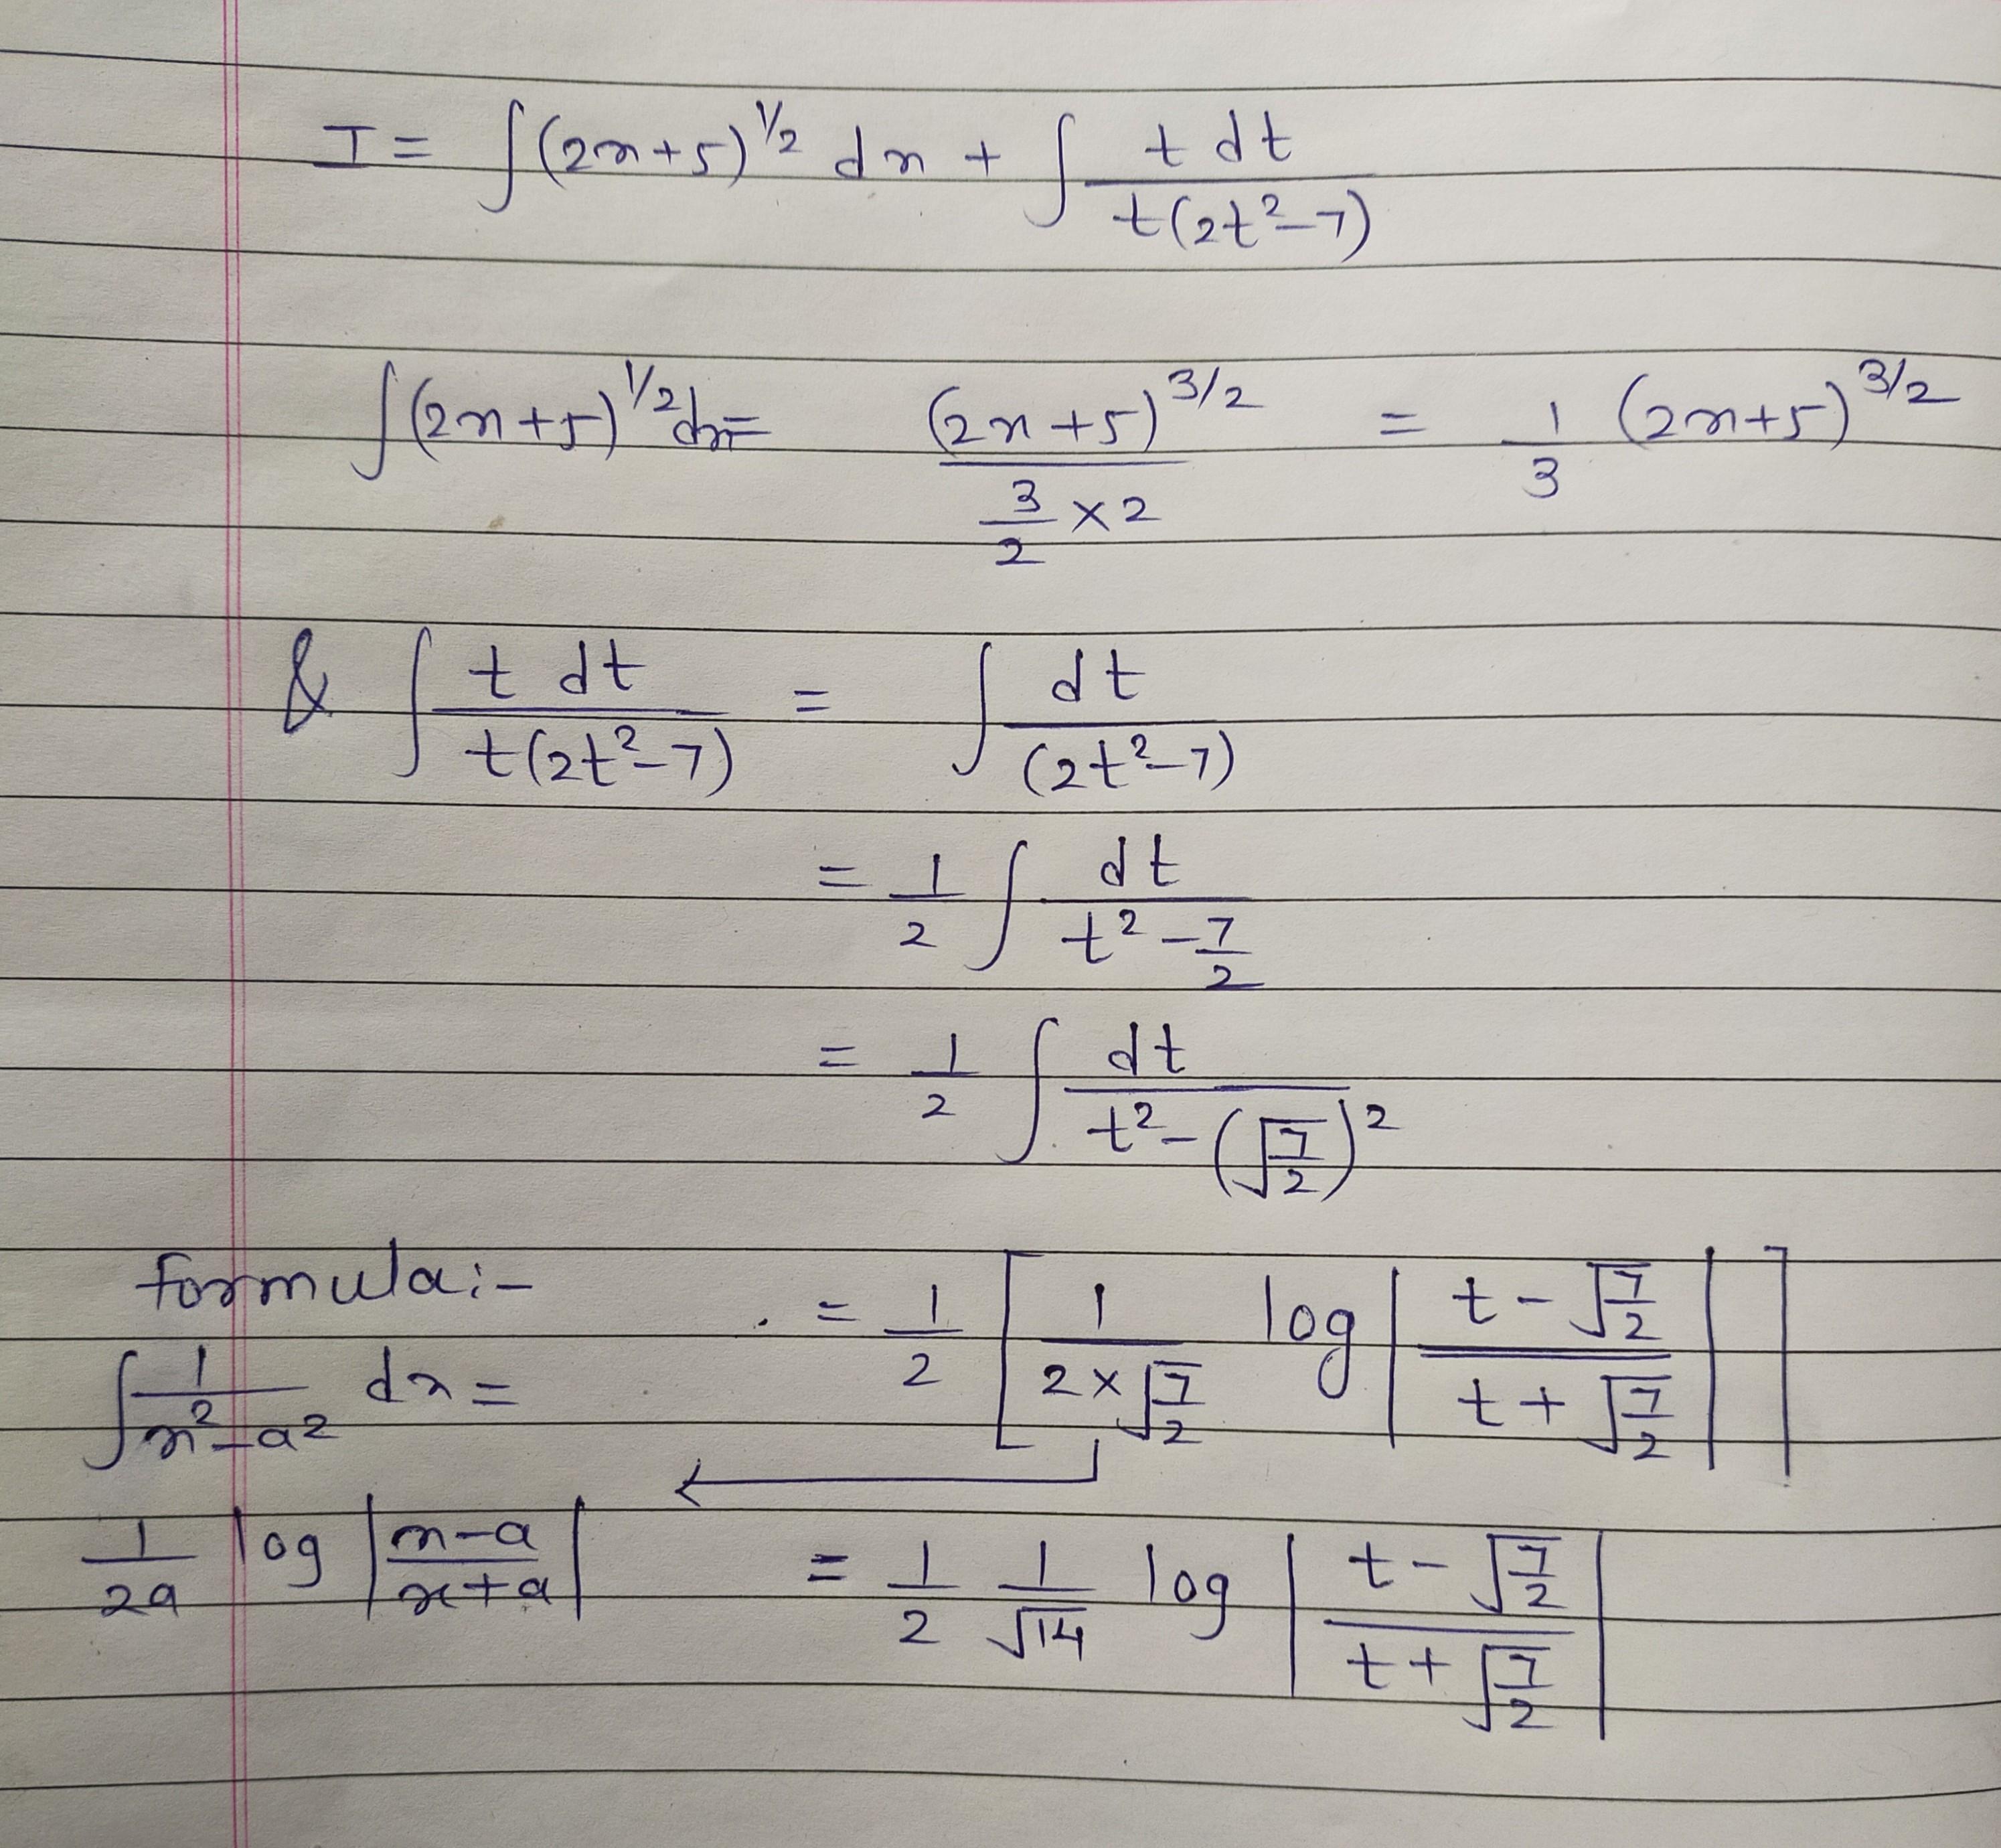 I = ∫(2x+5)^1/2 dx + ∫ t dt / t(2t²-7)
∫(2x+5)^1/2 dx = (2x+5)^3/2 / (3/2 × 2) = 1/3 (2x+5)^3/2
& ∫ t dt / t(2t²-7) = ∫ dt / (2t²-7)
= 1/2 ∫ dt / (t² - 7/2)
= 1/2 ∫ dt / (t² - (√(7/2))²)
formula:-
= 1/2 [ 1 / (2×√(7/2)) log | (t - √(7/2)) / (t + √(7/2)) | ]
∫ 1 / (x² - a²) dx =
1/2a log | (x-a) / (x+a) |
= 1/2 1/√14 log | (t - √(7/2)) / (t + √(7/2)) |